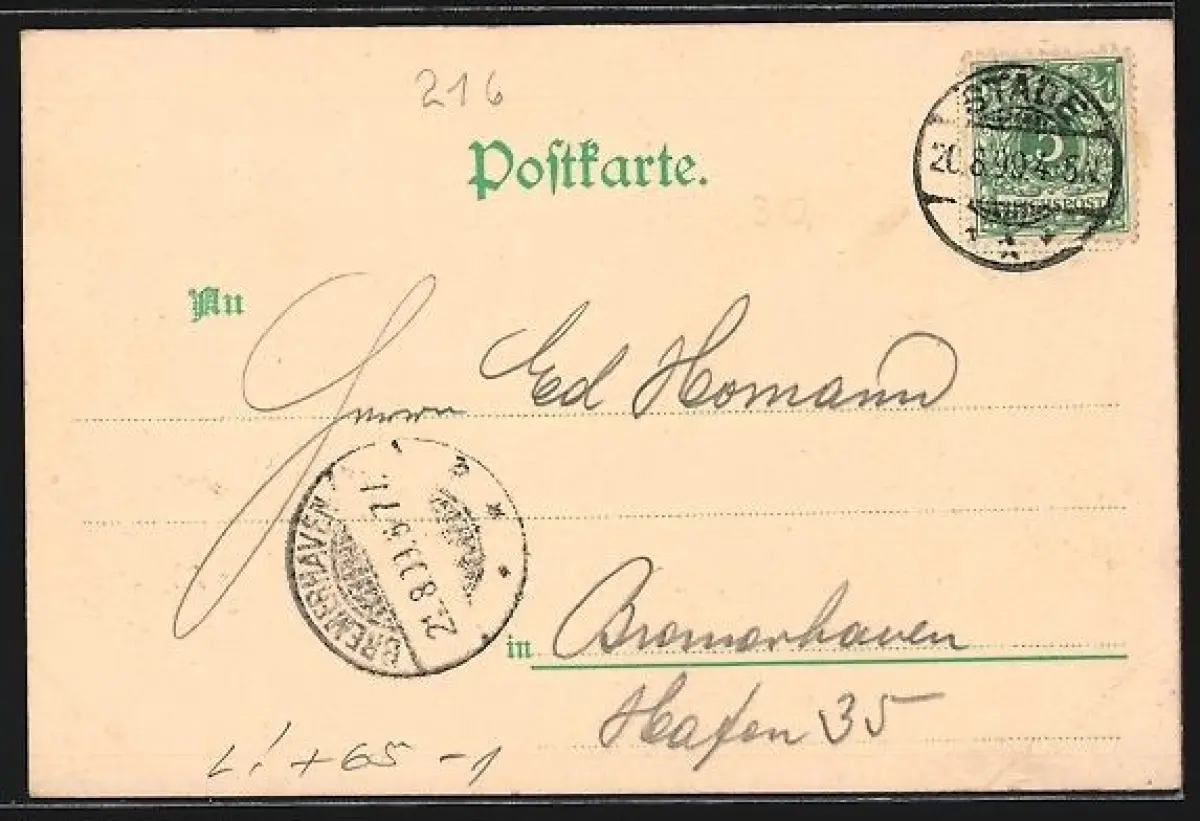 216
Postkarte.
STADE
5
REICHSPOST
An
Herrn Ed Homann
BREMERHAVEN
in Bremerhaven
Hafen 35
L! + 65 -1